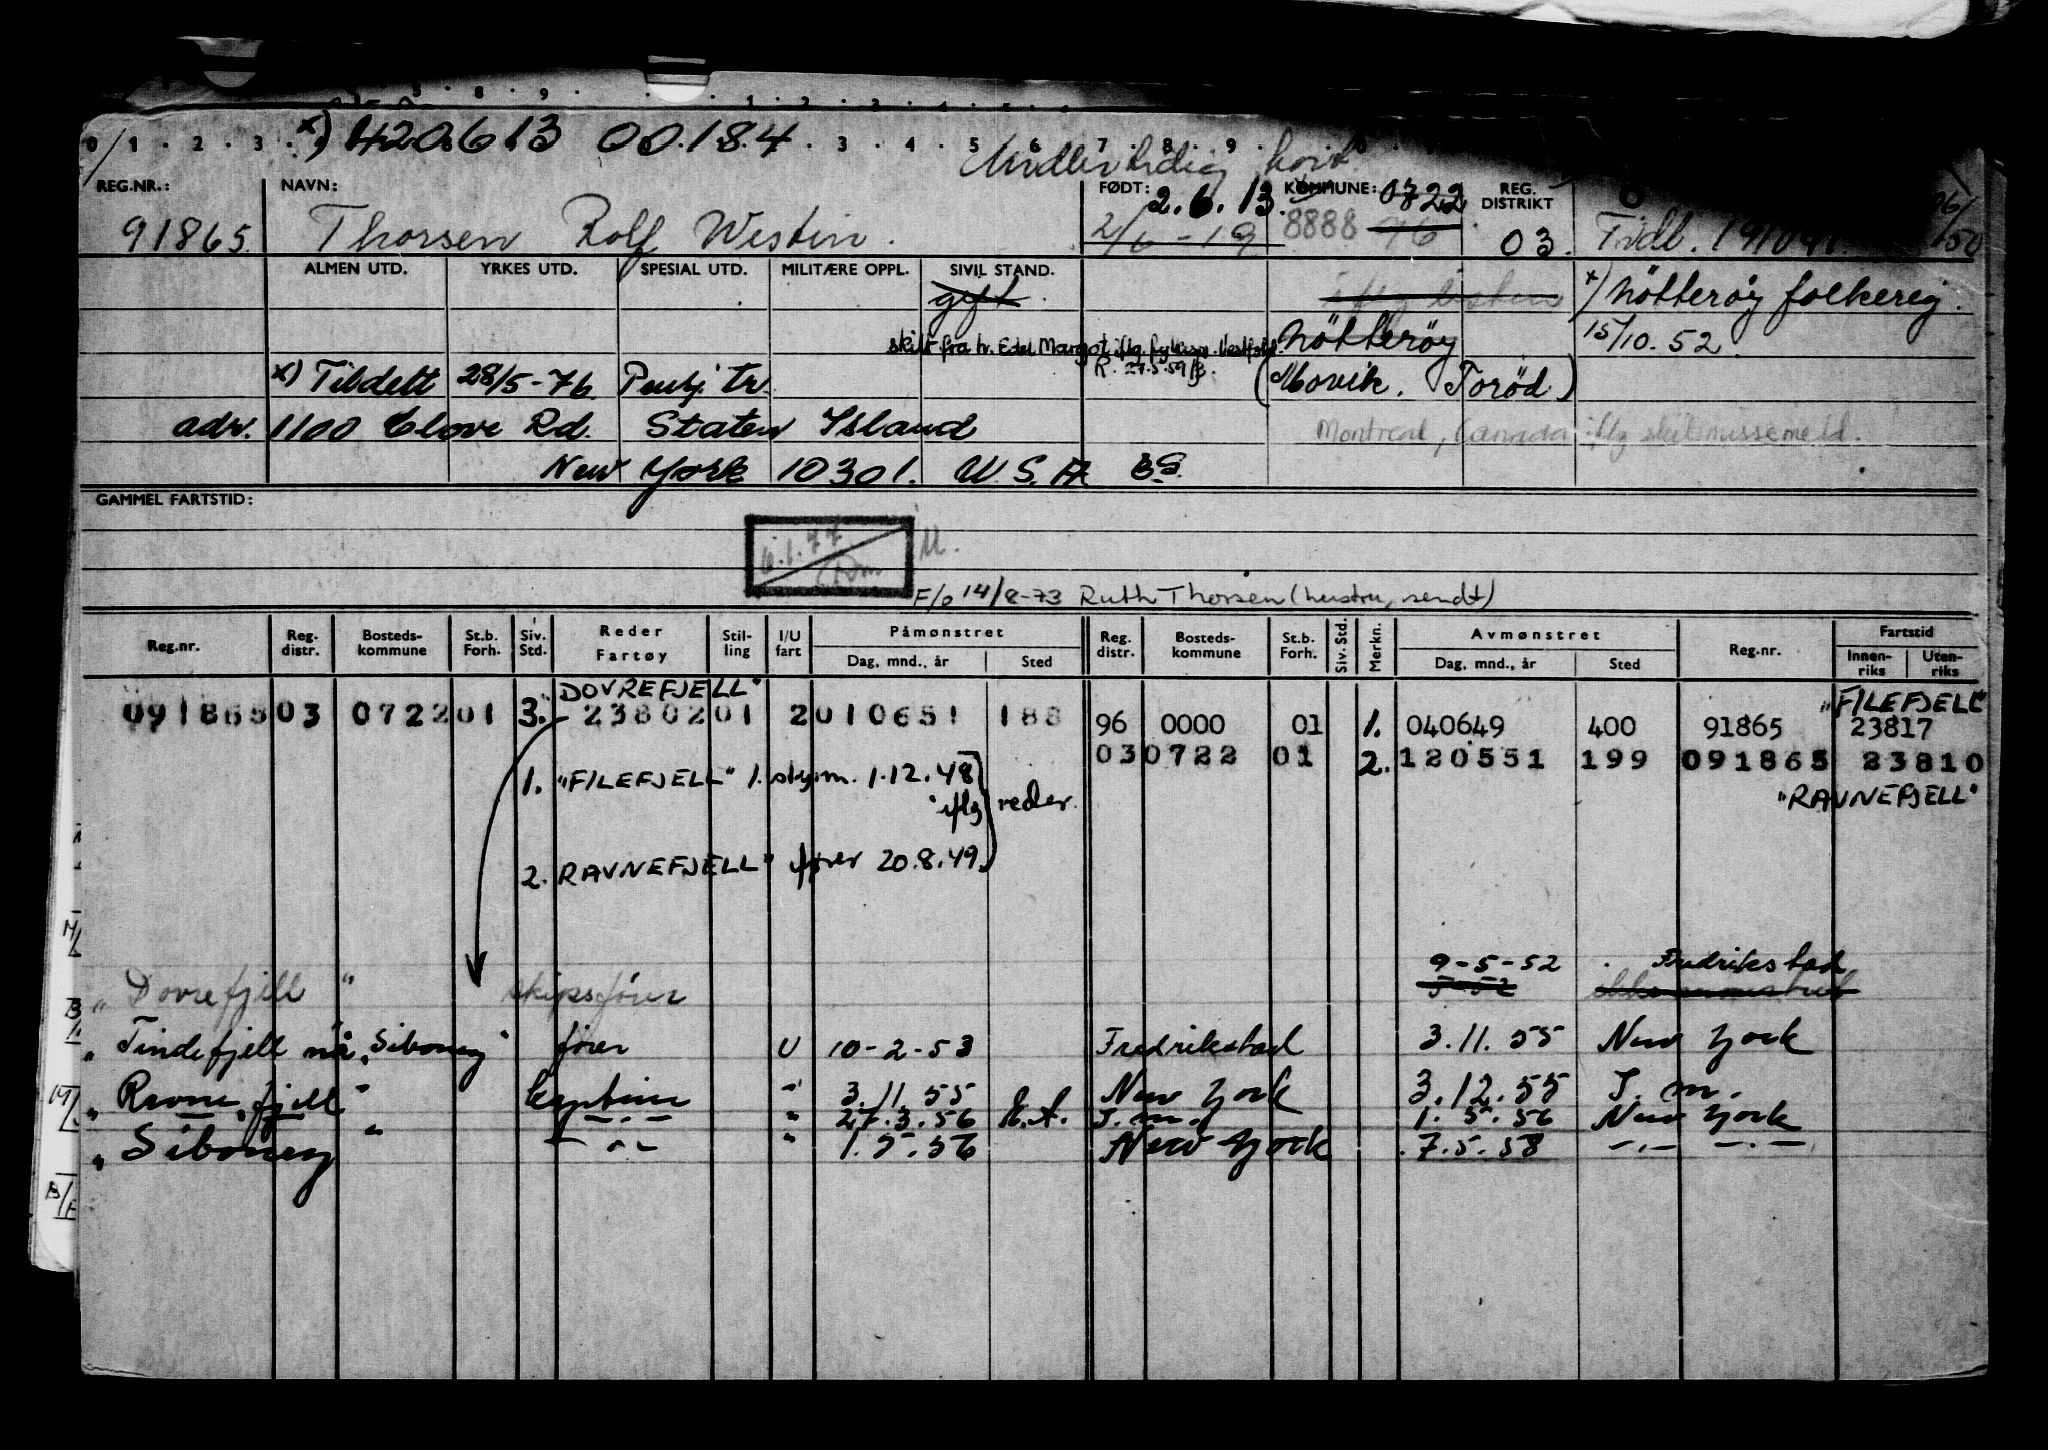 x) 420613 00184
Midlertidig kort
REG.NR.: NAVN: FØDT: 2.6.13. KOMMUNE: 0722 REG. DISTRIKT
91865. Thorsen Rolf Westin. 2/6-19 8888 96 03. Fvdl.
ALMEN UTD. YRKES UTD. SPESIAL UTD. MILITÆRE OPPL. SIVIL STAND.
gift x) Nötteröy folkereg.
skilt fra hr. Edel Margot iflg. Nötteröy 15/10.52.
R. 27.5.59
x) Tildelt 28/5-76. (Movik. Toröd)
adr. 1100 Clove Rd. Staten Island Montreal, Canada iflg skilsmissemeld.
New York 10301. U.S.A. BS.
GAMMEL FARTSTID:
6.1.77 M.
F/o 14/8-73 Ruth Thorsen (hustru, sendt)
Reg.nr. Reg. distr. Bosteds-kommune St.b. Forh. Siv. Std. Reder Fartøy Stil-ling I/U fart Påmønstret Dag, mnd., år Sted Reg. distr. Bosteds-kommune St.b. Forh. Siv. Std. Merkn. Avmønstret Dag, mnd., år Sted Reg.nr. Fartstid Innen-riks Uten-riks
"DOVREFJELL" "FILEFJELL"
091865 03 0722 01 3. 23802 01 2 010651 188 96 0000 01 1. 040649 400 91865 23817
03 0722 01 2. 120551 199 091865 23810
1. "FILEFJELL" 1. styrm. 1.12.48 iflg reder. "RAVNEFJELL"
2. RAVNEFJELL" fører 20.8.49
9-5-52 Fredrikstad
"Dovrefjell" skipsfører 5-52
"Tindefjell nå "Siboney" fører U 10-2-53 Fredrikstad 3.11.55 New York
"Ravnefjell" Kaptein " 3.11.55 New York 3.12.55 S.m.
" -.- " 27.3.56 S.m. 1.5.56 New York
"Siboney" -.- " 1.5.56 New York 7.5.58 -.- -.-